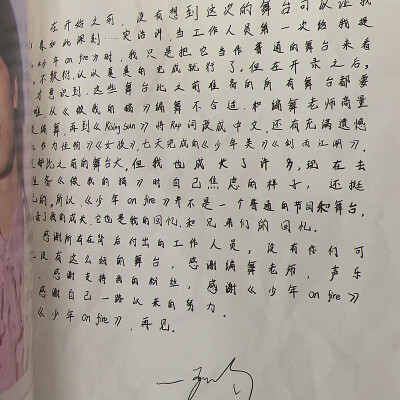 在开始之前，没有想到这次的舞台可以让我
如此深刻。实话讲，当工作人员第一次给我提
《少年 on fire》时，我只是把它当作普通的舞台来看
，不敷衍，认认真真的完成就行了。但在开录之后，
才意识到，这些舞台比之前准备的所有舞台都要
难，从《做我的猫》编舞不合适，和编舞老师商量
编舞，再到《Rising Sun》将Rap词改成中文，还有充满遗憾
《女孩》，七天完成的《少年美》《刺青江湖》，
都比之前的舞台大，但我也成长了许多，现在去
准备《做我的猫》时自己焦虑的样子，还挺
的，所以《少年 on fire》并不是一个普通的节目和舞台，
了我的成长，它也是我的回忆，和兄弟们的回忆。
感谢所有在背后付出的工作人员，没有你们可
没有这么好的舞台，感谢编舞老师，声乐
，感谢支持我的粉丝，感谢《少年 on fire》
感谢自己一路以来的努力。
《少年 on fire》，再见。